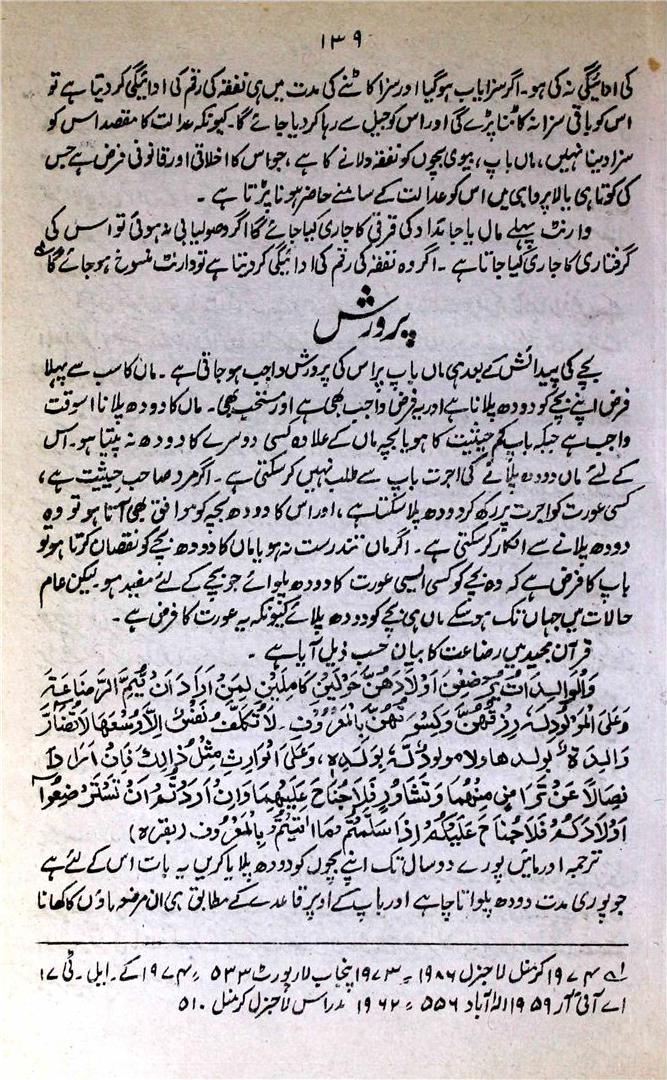 ۱۳۹
کی ادائیگی نہ کی ہو۔ اگر سزایاب ہوگیا اور سزا کاٹنے کی مدت میں ہی نفقہ کی رقم کی ادائیگی کردیتا ہے تو
اس کو باقی سزا نہ کاٹنا پڑے گی اور اس کو جیل سے رہا کردیا جائے گا۔ کیونکہ عدالت کا مقصد اس کو
سزا دینا نہیں، ماں باپ، بیوی بچوں کو نفقہ دلانے کا ہے، جو اس کا اخلاقی اور قانونی فرض ہے جس
کی کوتاہی یا لاپرواہی میں اس کو عدالت کے سامنے حاضر ہونا پڑتا ہے۔
وارنٹ پہلے مال یا جائداد کی قرقی کا جاری کیا جائے گا اگر وصولیابی نہ ہوئی تو اس کی
گرفتاری کا جاری کیا جاتا ہے۔ اگر وہ نفقہ کی رقم کی ادائیگی کردیتا ہے تو وارنٹ منسوخ ہوجائے گا
پرورش
بچے کی پیدائش کے بعد ہی ماں باپ پر اس کی پرورش واجب ہوجاتی ہے۔ ماں کا سب سے پہلا
فرض اپنے بچے کو دودھ پلانا ہے اور یہ فرض واجب بھی ہے اور مستحب بھی۔ ماں کا دودھ پلانا اسوقت
واجب ہے جبکہ باپ کم حیثیت کا ہو یا بچہ ماں کے علاوہ کسی دوسرے کا دودھ نہ پیتا ہو۔ اس
کے لئے ماں دودھ پلانے کی اجرت باپ سے طلب نہیں کرسکتی ہے۔ اگر مرد صاحب حیثیت ہے،
کسی عورت کو اجرت پر رکھ کر دودھ پلا سکتا ہے، اور اس کا دودھ بچہ کو موافق بھی آتا ہو تو وہ
دودھ پلانے سے انکار کرسکتی ہے۔ اگر ماں تندرست نہ ہو یا ماں کا دودھ بچے کو نقصان کرتا ہو تو
باپ کا فرض ہے کہ وہ بچے کو کسی ایسی عورت کا دودھ پلوائے جو بچے کے لئے مفید ہو۔ لیکن عام
حالات میں جہاں تک ہوسکے ماں ہی بچے کو دودھ پلائے کیونکہ یہ عورت کا فرض ہے۔
قرآن مجید میں رضاعت کا بیان حسب ذیل آیا ہے۔
وَالْوَالِدَاتُ يُرْضِعْنَ اَوْلَادَهُنَّ حَوْلَيْنِ كَامِلَيْنِ لِمَنْ اَرَادَ اَنْ يُّتِمَّ الرَّضَاعَةَ
وَعَلَى الْمَوْلُودِ لَهٗ رِزْقُهُنَّ وَكِسْوَتُهُنَّ بِالْمَعْرُوْفِ۔ لَا تُكَلَّفُ نَفْسٌ اِلَّا وُسْعَهَا لَا تُضَارَّ
وَالِدَةٌ بولدها ولا مولودٌ لَّهٗ بِوَلَدِهٖ، وَعَلَى الْوَارِثِ مِثْلُ ذَالِكَ فَاِنْ اَرَادَا
فِصَالًا عَنْ تَرَاضٍ مِنْهُمَا وَتَشَاوُرٍ فَلَا جُنَاحَ عَلَيْهِمَا وَاِنْ اَرَدْتُّمْ اَنْ تَسْتَرْضِعُوْا
اَوْلَادَكُمْ فَلَا جُنَاحَ عَلَيْكُمْ اِذَا سَلَّمْتُمْ مَا اٰتَيْتُمْ بِالْمَعْرُوْفِ (بقرہ)
ترجمہ اور مائیں پورے دو سال تک اپنے بچوں کو دودھ پلایا کریں یہ بات اس کے لئے ہے
جو پوری مدت دودھ پلوانا چاہے اور باپ کے اوپر قاعدے کے مطابق ہی ان ماؤں کا کھانا
۱۹۷۴ کرمنل لا جرنل ۱۹۸۶ ۔ ۱۹۷۳ پنجاب لا رپورٹ ۵۳۳ ۔ ۱۹۷۴ کے۔ ایل۔ ٹی ۱۷
اے آئی آر ۱۹۵۹ الہ آباد ۵۵۶ ۔ ۱۹۶۲ مدراس لا جرنل کرمنل ۵۱۰